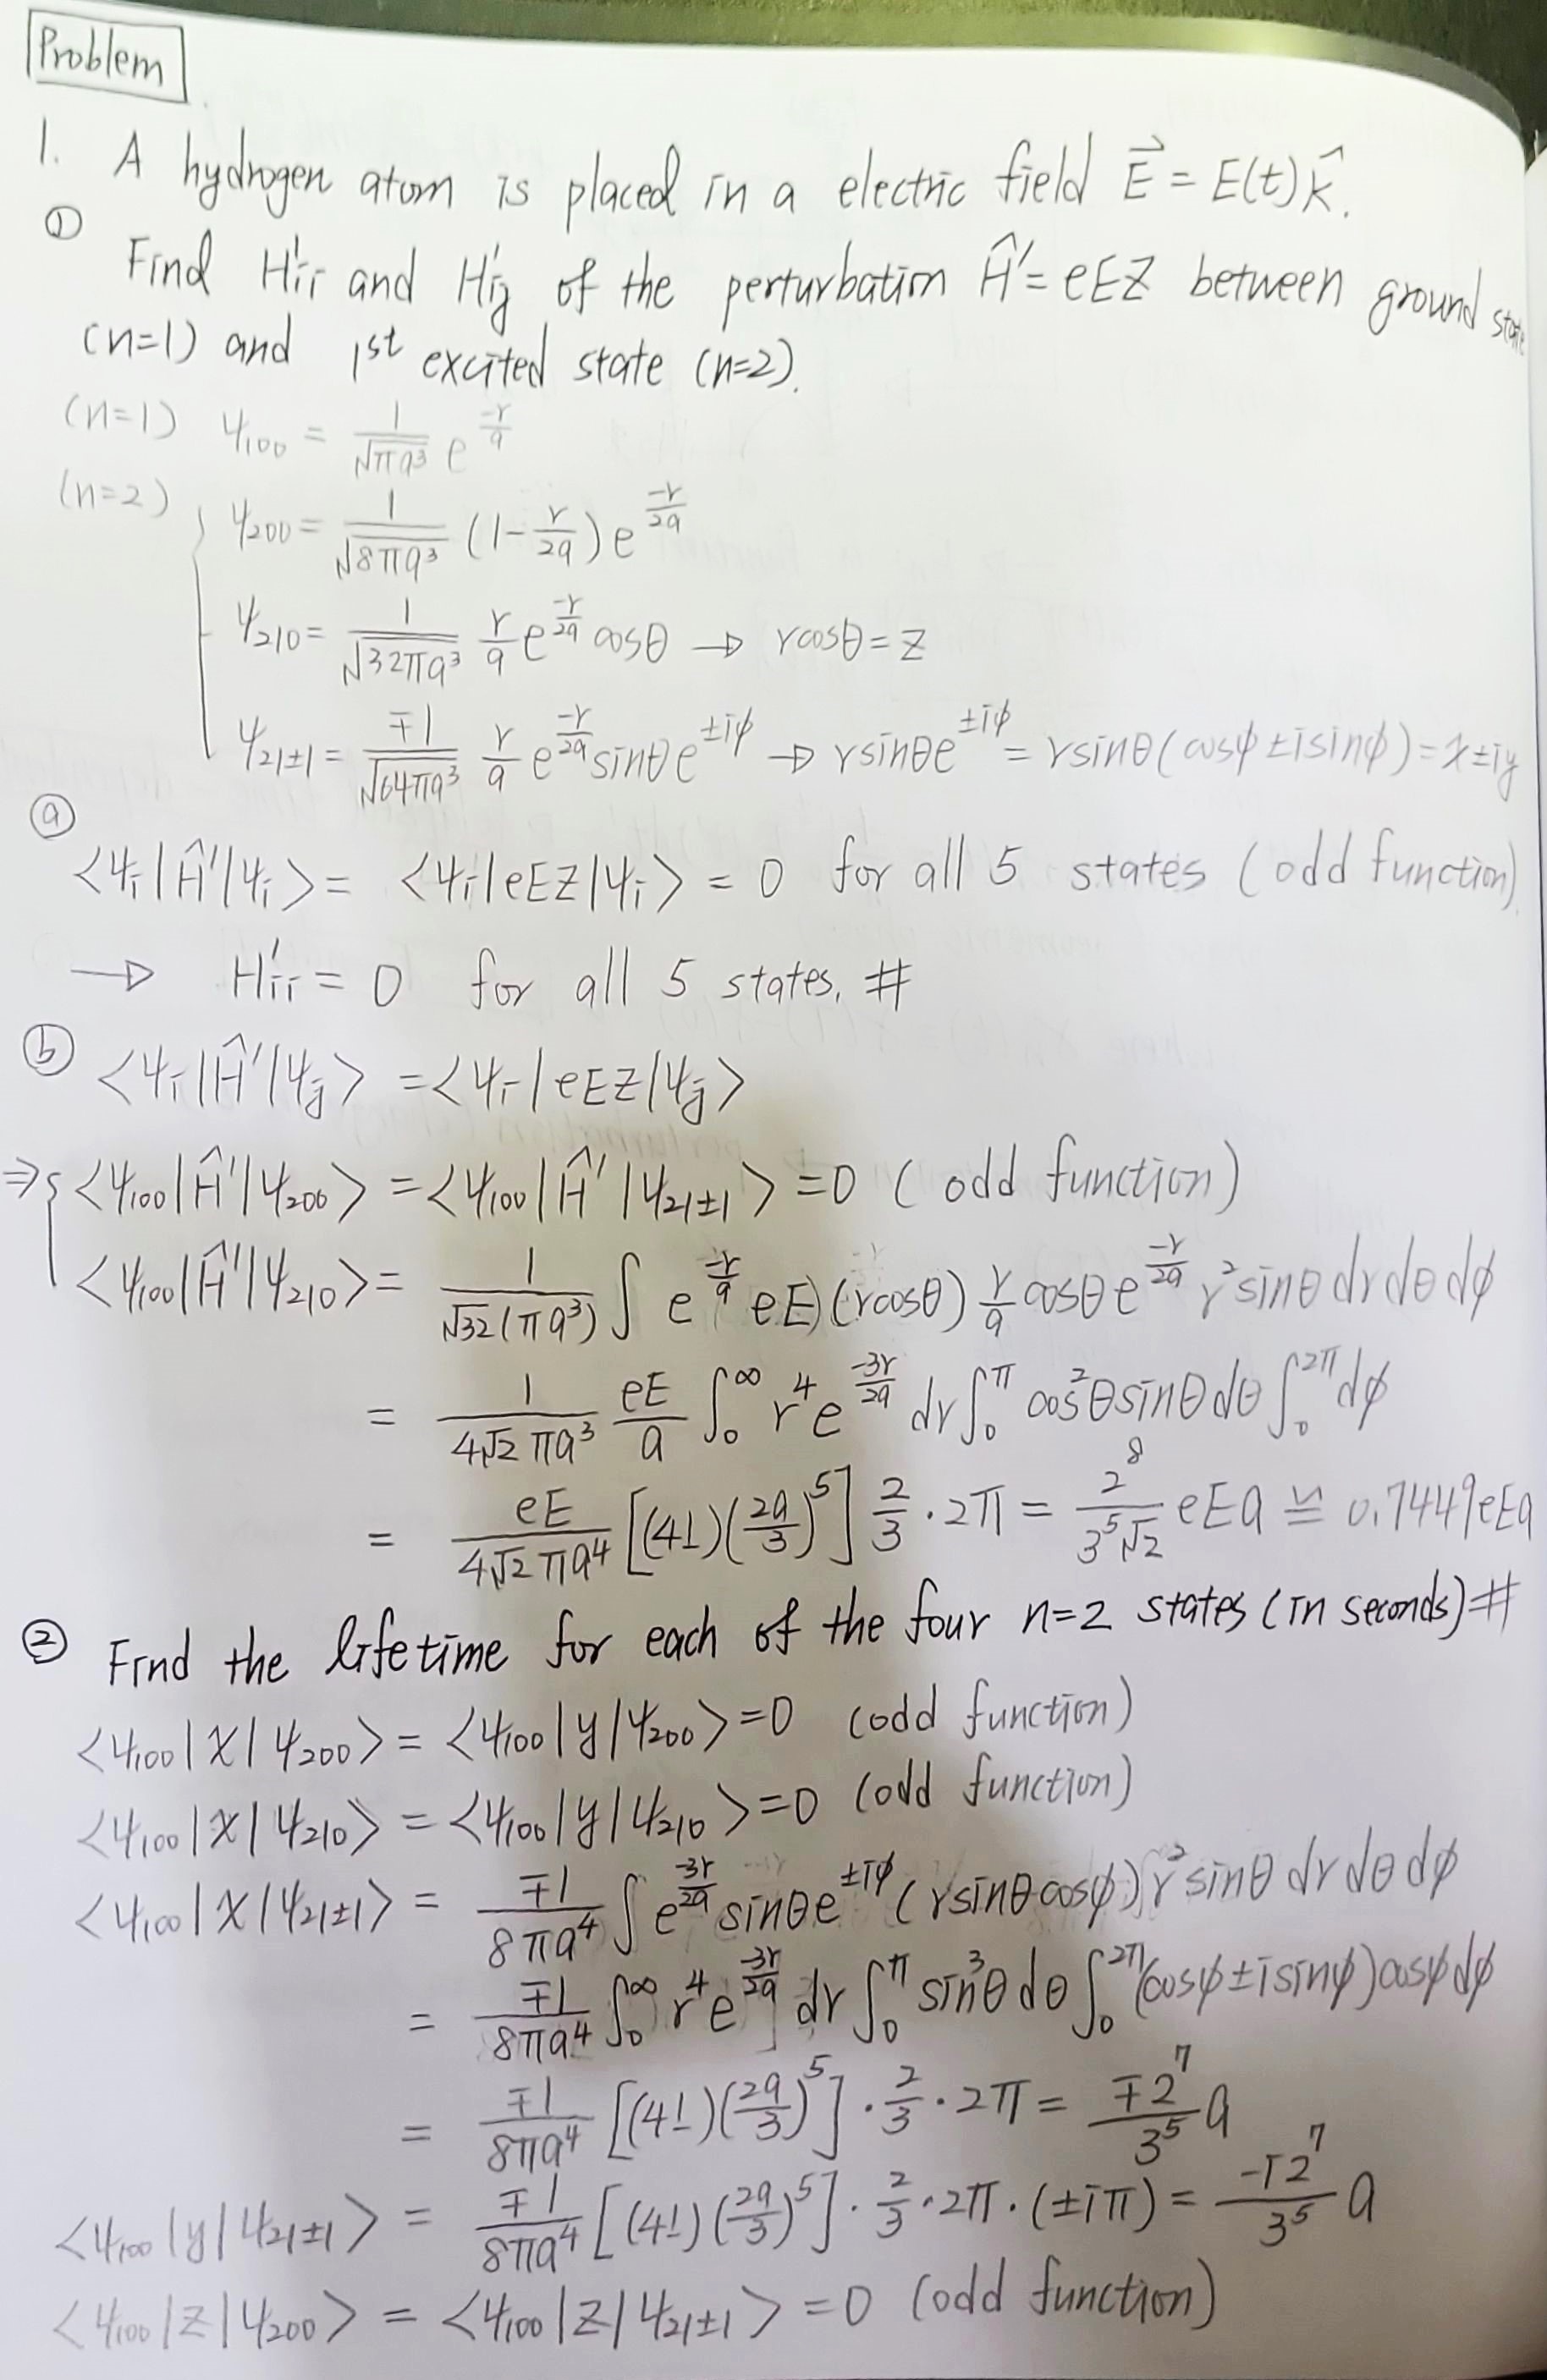 Problem
1. A hydrogen atom is placed in a electric field \vec{E} = E(t)\hat{k}.
① Find H'ii and H'ij of the perturbation \hat{H}' = eEZ between ground state
(n=1) and 1st excited state (n=2).
(n=1) ψ100 = \frac{1}{\sqrt{πa^3}} e^{\frac{-r}{a}}
(n=2) { ψ200 = \frac{1}{\sqrt{8πa^3}} (1-\frac{r}{2a}) e^{\frac{-r}{2a}}
ψ210 = \frac{1}{\sqrt{32πa^3}} \frac{r}{a} e^{\frac{-r}{2a}} cosθ → rcosθ = z
ψ21±1 = \frac{∓1}{\sqrt{64πa^3}} \frac{r}{a} e^{\frac{-r}{2a}} sinθ e^{±iφ} → r sinθ e^{±iφ} = r sinθ (cosφ ± i sinφ) = x ± iy
ⓐ
<ψi|\hat{H}'|ψi> = <ψi|eEZ|ψi> = 0 for all 5 states (odd function)
→ H'ii = 0 for all 5 states. #
ⓑ <ψi|\hat{H}'|ψj> = <ψi|eEZ|ψj>
⇒ { <ψ100|\hat{H}'|ψ200> = <ψ100|\hat{H}'|ψ21±1> = 0 (odd function)
<ψ100|\hat{H}'|ψ210> = \frac{1}{\sqrt{32}(πa^3)} ∫ e^{\frac{-r}{a}} eE)(rcosθ) \frac{r}{a} cosθ e^{\frac{-r}{2a}} r^2 sinθ dr dθ dφ
= \frac{1}{4\sqrt{2} πa^3} \frac{eE}{a} ∫_0^∞ r^4 e^{\frac{-3r}{2a}} dr ∫_0^π cos^2θ sinθ dθ ∫_0^{2π} dφ
= \frac{eE}{4\sqrt{2} πa^4} [(4!)(\frac{2a}{3})^5] \frac{2}{3} · 2π = \frac{2^8}{3^5\sqrt{2}} eEa ≌ 0.7449eEa
② Find the lifetime for each of the four n=2 states (in seconds) #
<ψ100|x|ψ200> = <ψ100|y|ψ200> = 0 (odd function)
<ψ100|x|ψ210> = <ψ100|y|ψ210> = 0 (odd function)
<ψ100|x|ψ21±1> = \frac{∓1}{8πa^4} ∫ e^{\frac{-3r}{2a}} sinθ e^{±iφ} (r sinθ cosφ) r^2 sinθ dr dθ dφ
= \frac{∓1}{8πa^4} ∫_0^∞ r^4 e^{\frac{-3r}{2a}} dr ∫_0^π sin^3θ dθ ∫_0^{2π} (cosφ ± i sinφ) cosφ dφ
= \frac{∓1}{8πa^4} [(4!)(\frac{2a}{3})^5] · \frac{2}{3} · 2π = \frac{∓2^7}{3^5} a
<ψ100|y|ψ21±1> = \frac{∓1}{8πa^4} [(4!)(\frac{2a}{3})^5] · \frac{2}{3} · 2π · (±iπ) = \frac{-i2^7}{3^5} a
<ψ100|z|ψ200> = <ψ100|z|ψ21±1> = 0 (odd function)